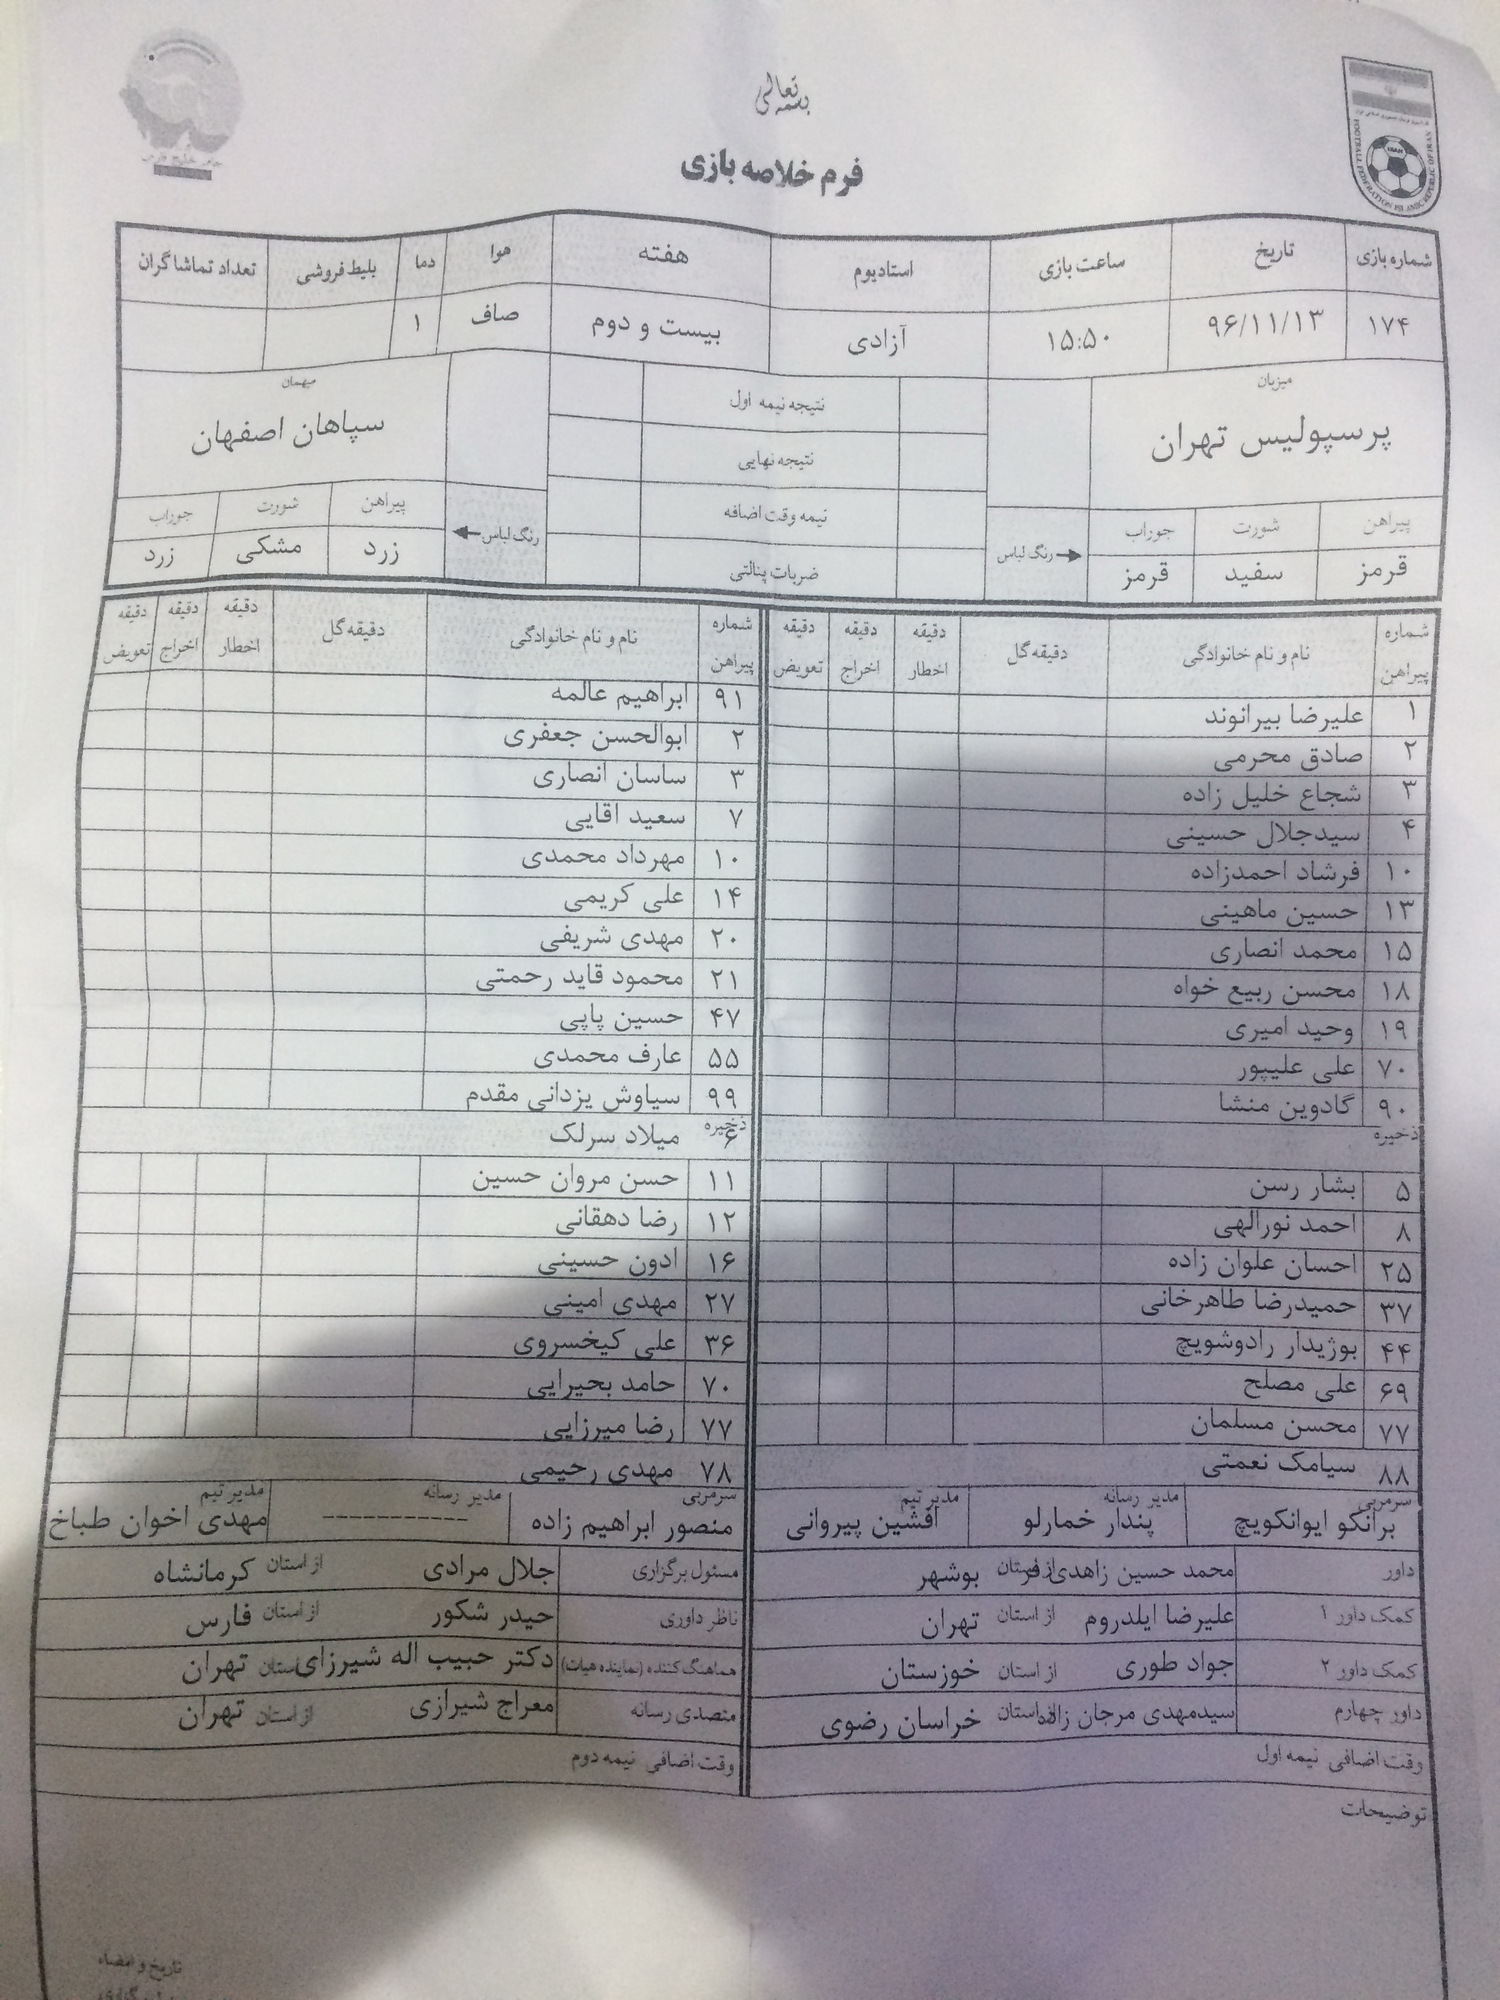 بسمه تعالی
فرم خلاصه بازی
FOOTBALL FEDERATION ISLAMIC REPUBLIC OF IRAN
جام خلیج فارس
شماره بازی تاریخ ساعت بازی استادیوم هفته هوا دما بلیط فروشی تعداد تماشاگران
۱۷۴ ۹۶/۱۱/۱۳ ۱۵:۵۰ آزادی بیست و دوم صاف ۱
میزبان نتیجه نیمه اول میهمان
پرسپولیس تهران نتیجه نهایی سپاهان اصفهان
نیمه وقت اضافه
پیراهن شورت جوراب رنگ لباس ضربات پنالتی رنگ لباس پیراهن شورت جوراب
قرمز سفید قرمز زرد مشکی زرد
شماره پیراهن نام و نام خانوادگی دقیقه گل دقیقه اخطار دقیقه اخراج دقیقه تعویض شماره پیراهن نام و نام خانوادگی دقیقه گل دقیقه اخطار دقیقه اخراج دقیقه تعویض
۱ علیرضا بیرانوند ۹۱ ابراهیم عالمه
۲ صادق محرمی ۲ ابوالحسن جعفری
۳ شجاع خلیل زاده ۳ ساسان انصاری
۴ سیدجلال حسینی ۷ سعید اقایی
۱۰ فرشاد احمدزاده ۱۰ مهرداد محمدی
۱۳ حسین ماهینی ۱۴ علی کریمی
۱۵ محمد انصاری ۲۰ مهدی شریفی
۱۸ محسن ربیع خواه ۲۱ محمود قاید رحمتی
۱۹ وحید امیری ۴۷ حسین پاپی
۷۰ علی علیپور ۵۵ عارف محمدی
۹۰ گادوین منشا ۹۹ سیاوش یزدانی مقدم
ذخیره ذخیره ۶ میلاد سرلک
۵ بشار رسن ۱۱ حسن مروان حسین
۸ احمد نورالهی ۱۲ رضا دهقانی
۲۵ احسان علوان زاده ۱۶ ادون حسینی
۳۷ حمیدرضا طاهرخانی ۲۷ مهدی امینی
۴۴ بوژیدار رادوشویچ ۳۶ علی کیخسروی
۶۹ علی مصلح ۷۰ حامد بحیرایی
۷۷ محسن مسلمان ۷۷ رضا میرزایی
۸۸ سیامک نعمتی ۷۸ مهدی رحیمی
سرمربی مدیر رسانه مدیر تیم سرمربی مدیر رسانه مدیر تیم
برانکو ایوانکویچ پندار خمارلو افشین پیروانی منصور ابراهیم زاده ----------- مهدی اخوان طباخ
داور محمد حسین زاهدی فر از استان بوشهر مسئول برگزاری جلال مرادی از استان کرمانشاه
کمک داور ۱ علیرضا ایلدروم از استان تهران ناظر داوری حیدر شکور از استان فارس
کمک داور ۲ جواد طوری از استان خوزستان هماهنگ کننده (نماینده هیات) دکتر حبیب اله شیرزای استان تهران
داور چهارم سیدمهدی مرجان زاده استان خراسان رضوی متصدی رسانه معراج شیرازی از استان تهران
وقت اضافی نیمه اول وقت اضافی نیمه دوم
توضیحات
تاریخ و امضاء